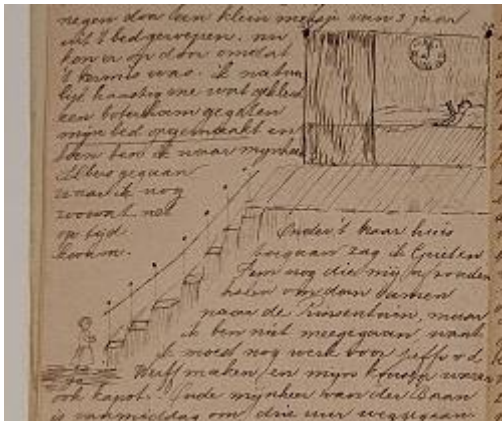 negen door een klein meisje van 3 jaar
uit 't bed geworpen. nu
kon er op door omdat
't kermis was. ik natuur
lijk haastig me wat gekleed
een boterham gegeten
mijn bed opgemaakt en
toen ben ik naar mijnheer
Albers gegaan
waar ik nog
zoowat net
op tijd
kwam.
Onder 't naar huis
toegaan zag ik Griet en
Fem nog die mij zouden
halen om dan samen
naar de tuin, maar
ik ben niet meegegaan want
ik moest nog werk voor jeffr v.d.
Werff maken en mijn kousen waren
ook kapot. Oude mijnheer van der Baan
is vanmiddag om drie uur weggegaan